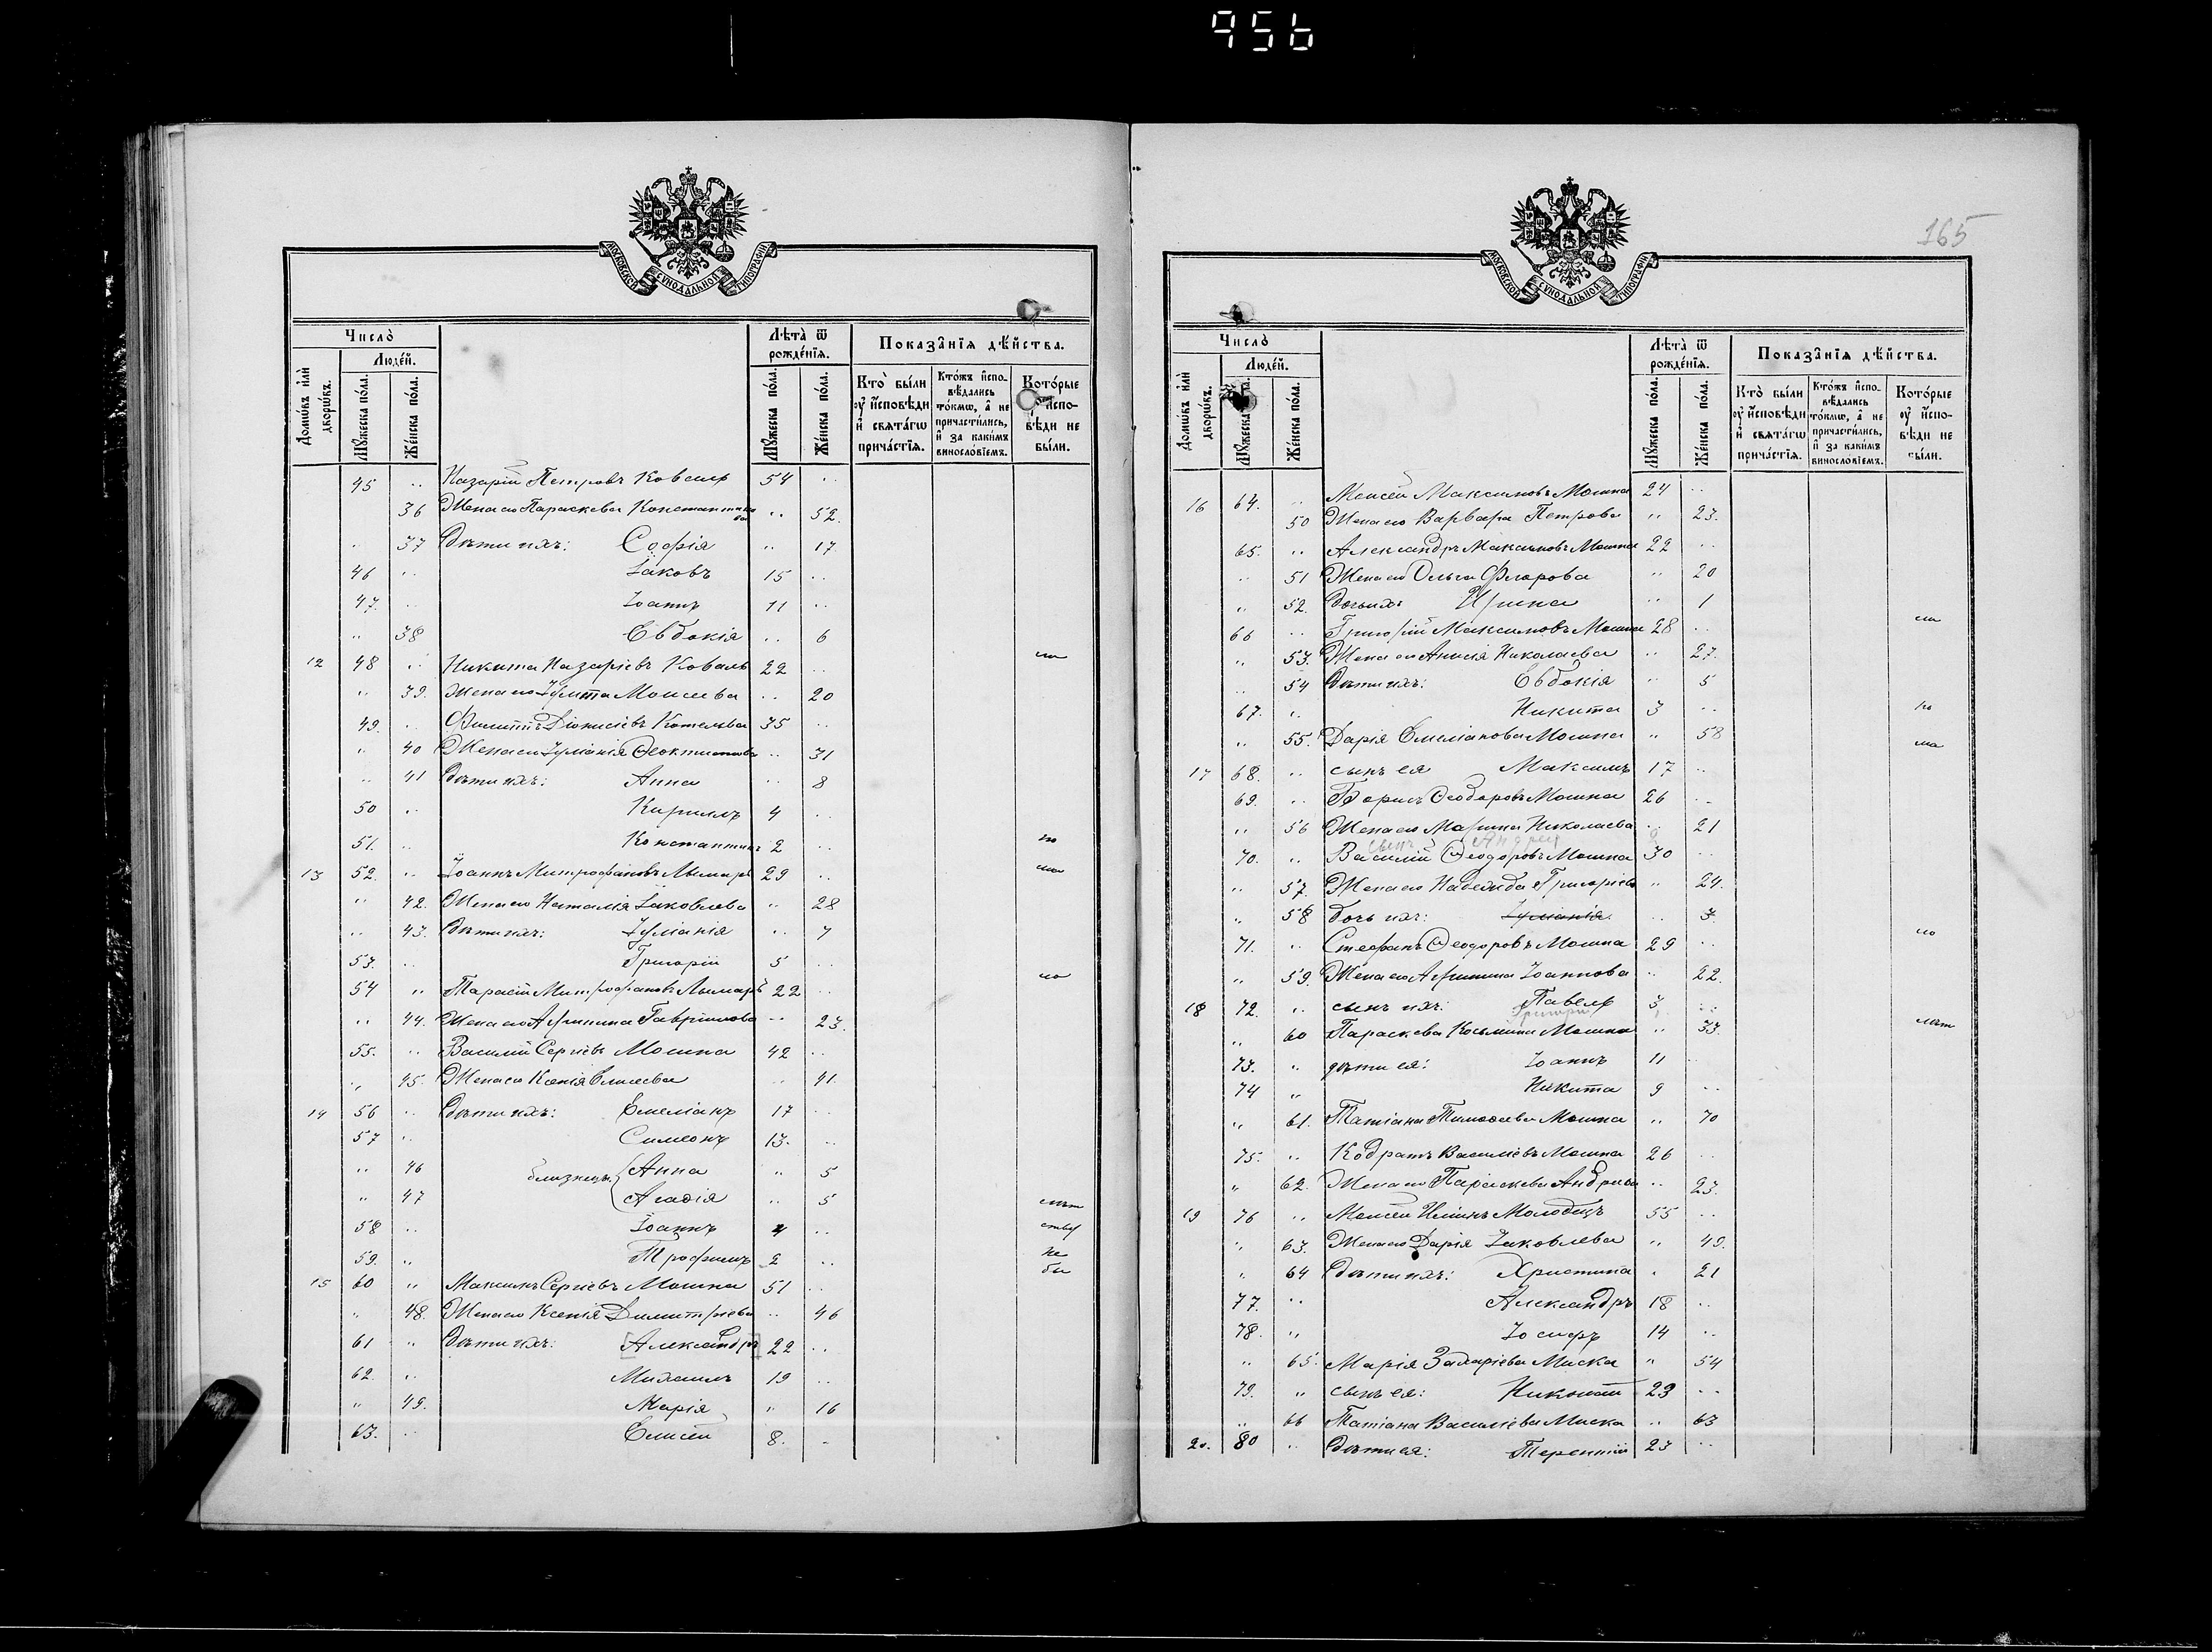 956
МОСКОВСКОЙ СѴНОДАЛЬНОЙ ТИПОГРАФІИ
Число̀
Лѣта̀ ѿ рожде́нїѧ.
Показа̑нїѧ дѣ́йства.
Люде́й.
Домѡ́въ и҆лѝ дворѡ́въ.
Мꙋ́жеска по́ла.
Же́нска по́ла.
Мꙋ́жеска по́ла.
Же́нска по́ла.
Кто̀ бы́ли ᲂу҆ и҆сповѣди и҆ свѧта́гѡ прича́стїѧ.
Кто́жъ и҆сповѣдались то́кмѡ, а҆ не причасти́лись, и҆ за каки́мъ винословїемъ.
Кото́рые ᲂу҆ и҆сповѣди не бы́ли.
45 .. Назарій Петровъ Коваль 54 ..
36 Жена его Параскева Константинова .. 52.
37 Дѣти ихъ: Софія .. 17
46 .. Іаковъ 15 ..
47. .. Іоаннъ 11 ..
.. 38 Евдокія .. 6
12 48 .. Никита Назаріевъ Коваль 22 ..
.. 39. Жена его Іулитта Моисеева .. 20
49. .. Филиппъ Діонисіевъ 35 ..
.. 40 Жена его Іуліанія Ѳеоктистова .. 31
.. 41 Дѣти ихъ: Анна .. 8
50 .. Кириллъ 4 ..
51. .. Константинъ 2 .. по
13 52. .. Іоаннъ Митрофановъ Лымарь 29 ..
.. 42. Жена его Наталія Іаковлева .. 28
.. 43. Дѣти ихъ: Іуліанія .. 7
53. .. Григорій 5 ..
54 .. Тарасій Митрофановъ Лымарь 22 ..
.. 44. Жена его Агрипина Гавріилова .. 23.
55. .. Василій Сергіевъ Мошна 42 ..
.. 45. Жена его Ксенія Елисеева .. 41.
14 56 .. Дѣти ихъ: Емеліанъ 17 ..
57 .. Симеонъ 13. ..
.. 46 близнецы { Анна .. 5
.. 47 Агаѳія .. 5
58 .. Іоаннъ 4 ..
59. .. Трофимъ 2 .. не
15 60 .. Максимъ Сергіевъ Мошна 51 ..
.. 48. Жена его Ксенія Димитріева .. 46
61 .. Дѣти ихъ: [Александръ] 22 ..
62. .. Михаилъ 19 ..
.. 49. Марія .. 16
63. .. Елисей 8. ..
165
МОСКОВСКОЙ СѴНОДАЛЬНОЙ ТИПОГРАФІИ
Число̀
Лѣта̀ ѿ рожде́нїѧ.
Показа̑нїѧ дѣ́йства.
Люде́й.
Домѡ́въ и҆лѝ дворѡ́въ.
Мꙋ́жеска по́ла.
Же́нска по́ла.
Мꙋ́жеска по́ла.
Же́нска по́ла.
Кто̀ бы́ли ᲂу҆ и҆сповѣди и҆ свѧта́гѡ прича́стїѧ.
Кто́жъ и҆сповѣдались то́кмѡ, а҆ не причасти́лись, и҆ за каки́мъ винословїемъ.
Кото́рые ᲂу҆ и҆сповѣди не бы́ли.
16 64. .. Моисей Максимовъ Мошна 24 ..
50 Жена его Варвара Петрова .. 23.
65. .. Александръ Максимовъ Мошна 22 ..
.. 51 Жена его Ольга Флорова .. 20
.. 52. Дочь ихъ: Ирина .. 1
66 .. Григорій Максимовъ Мошна 28 ..
.. 53. Жена его Анисія Николаева .. 27.
.. 54 Дѣти ихъ: Евдокія .. 5
67. .. Никита 3 ..
.. 55. Дарія Емеліанова Мошна .. 58
17 68. .. сынъ ея Максимъ 17 ..
69. .. Борисъ Ѳеодоровъ Мошна 26 ..
.. 56 Жена его Марина Николаева .. 21
сынъ Андрей
70. .. Василій Ѳеодоровъ Мошна 30 ..
.. 57. Жена его Надежда Григоріева .. 24.
.. 58 дочь ихъ: Іуліанія .. 3.
71. .. Стефанъ Ѳеодоровъ Мошна 29 ..
.. 59. Жена его Агрипина Іоаннова .. 22.
18 72. .. сынъ ихъ: Павелъ 3 ..
Григорій
.. 60 Параскева Космина Мошна .. 33.
73. .. дѣти ея: Іоаннъ 11 ..
74 .. Никита 9 ..
.. 61. Татіана Тимоѳеева Мошна .. 70
75. .. Кодратъ Василіевъ Мошна 26 ..
.. 62. Жена его Параскева Андреева .. 23.
19 76 .. Моисей Молодецъ 55 ..
.. 63. Жена его Дарія Іаковлева .. 49.
.. 64 Дѣти ихъ: Христина .. 21
77. .. Александръ 18 ..
78. .. Іосифъ 14 ..
.. 65. Марія Захаріева Миска .. 54
79. .. сынъ ея: 23 ..
.. 66 Татіана Василіева Миска .. 63
20. 80 .. Дѣти ея: Терентій 23 ..